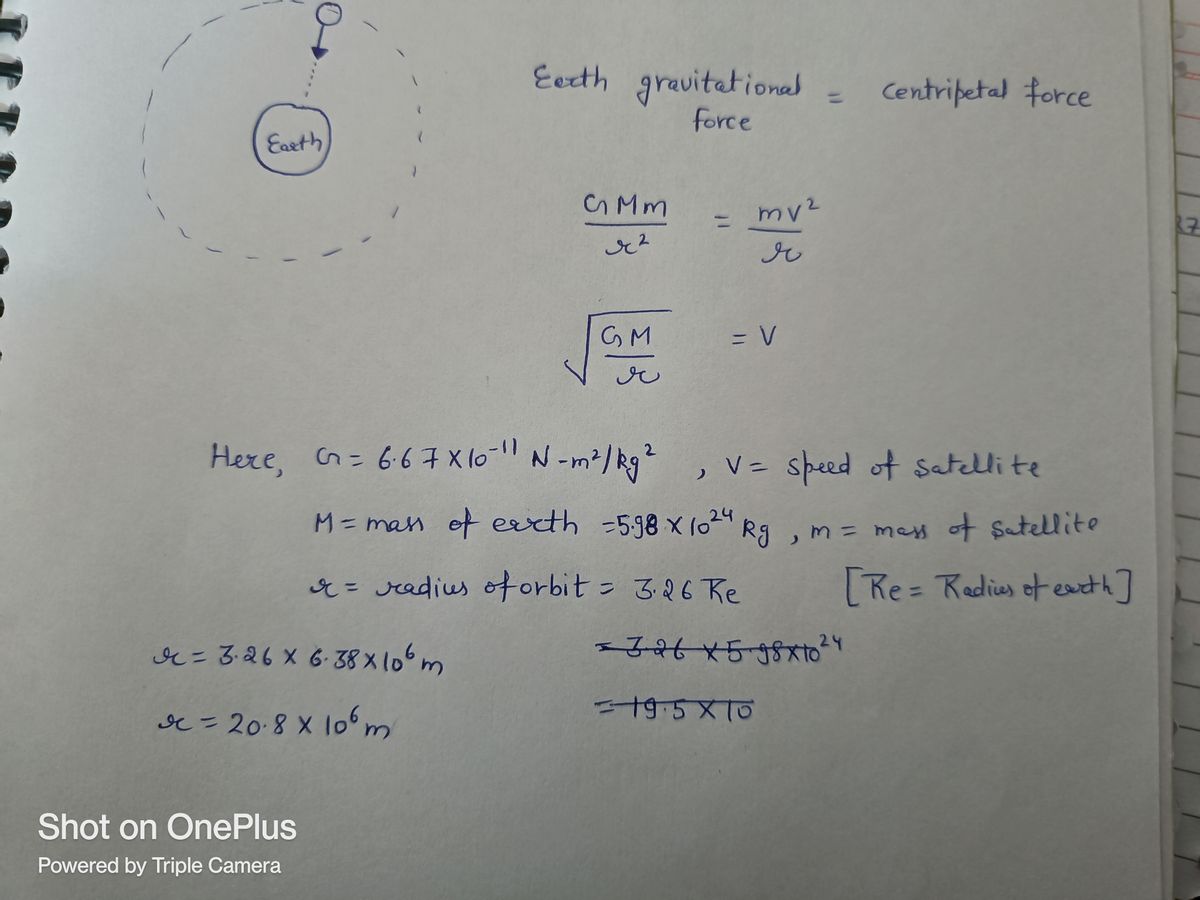 Earth
Earth gravitational force = centripetal force
GMm / r² = mv² / r
√(GM / r) = V
Here, G = 6.67 X 10⁻¹¹ N-m²/kg² , V = speed of satellite
M = mass of earth = 5.98 X 10²⁴ kg , m = mass of satellite
r = radius of orbit = 3.26 Re [Re = Radius of earth]
r = 3.26 X 6.38 X 10⁶ m = 3.26 X 5.98 X 10²⁴
r = 20.8 X 10⁶ m = 19.5 X 10
37
Shot on OnePlus
Powered by Triple Camera